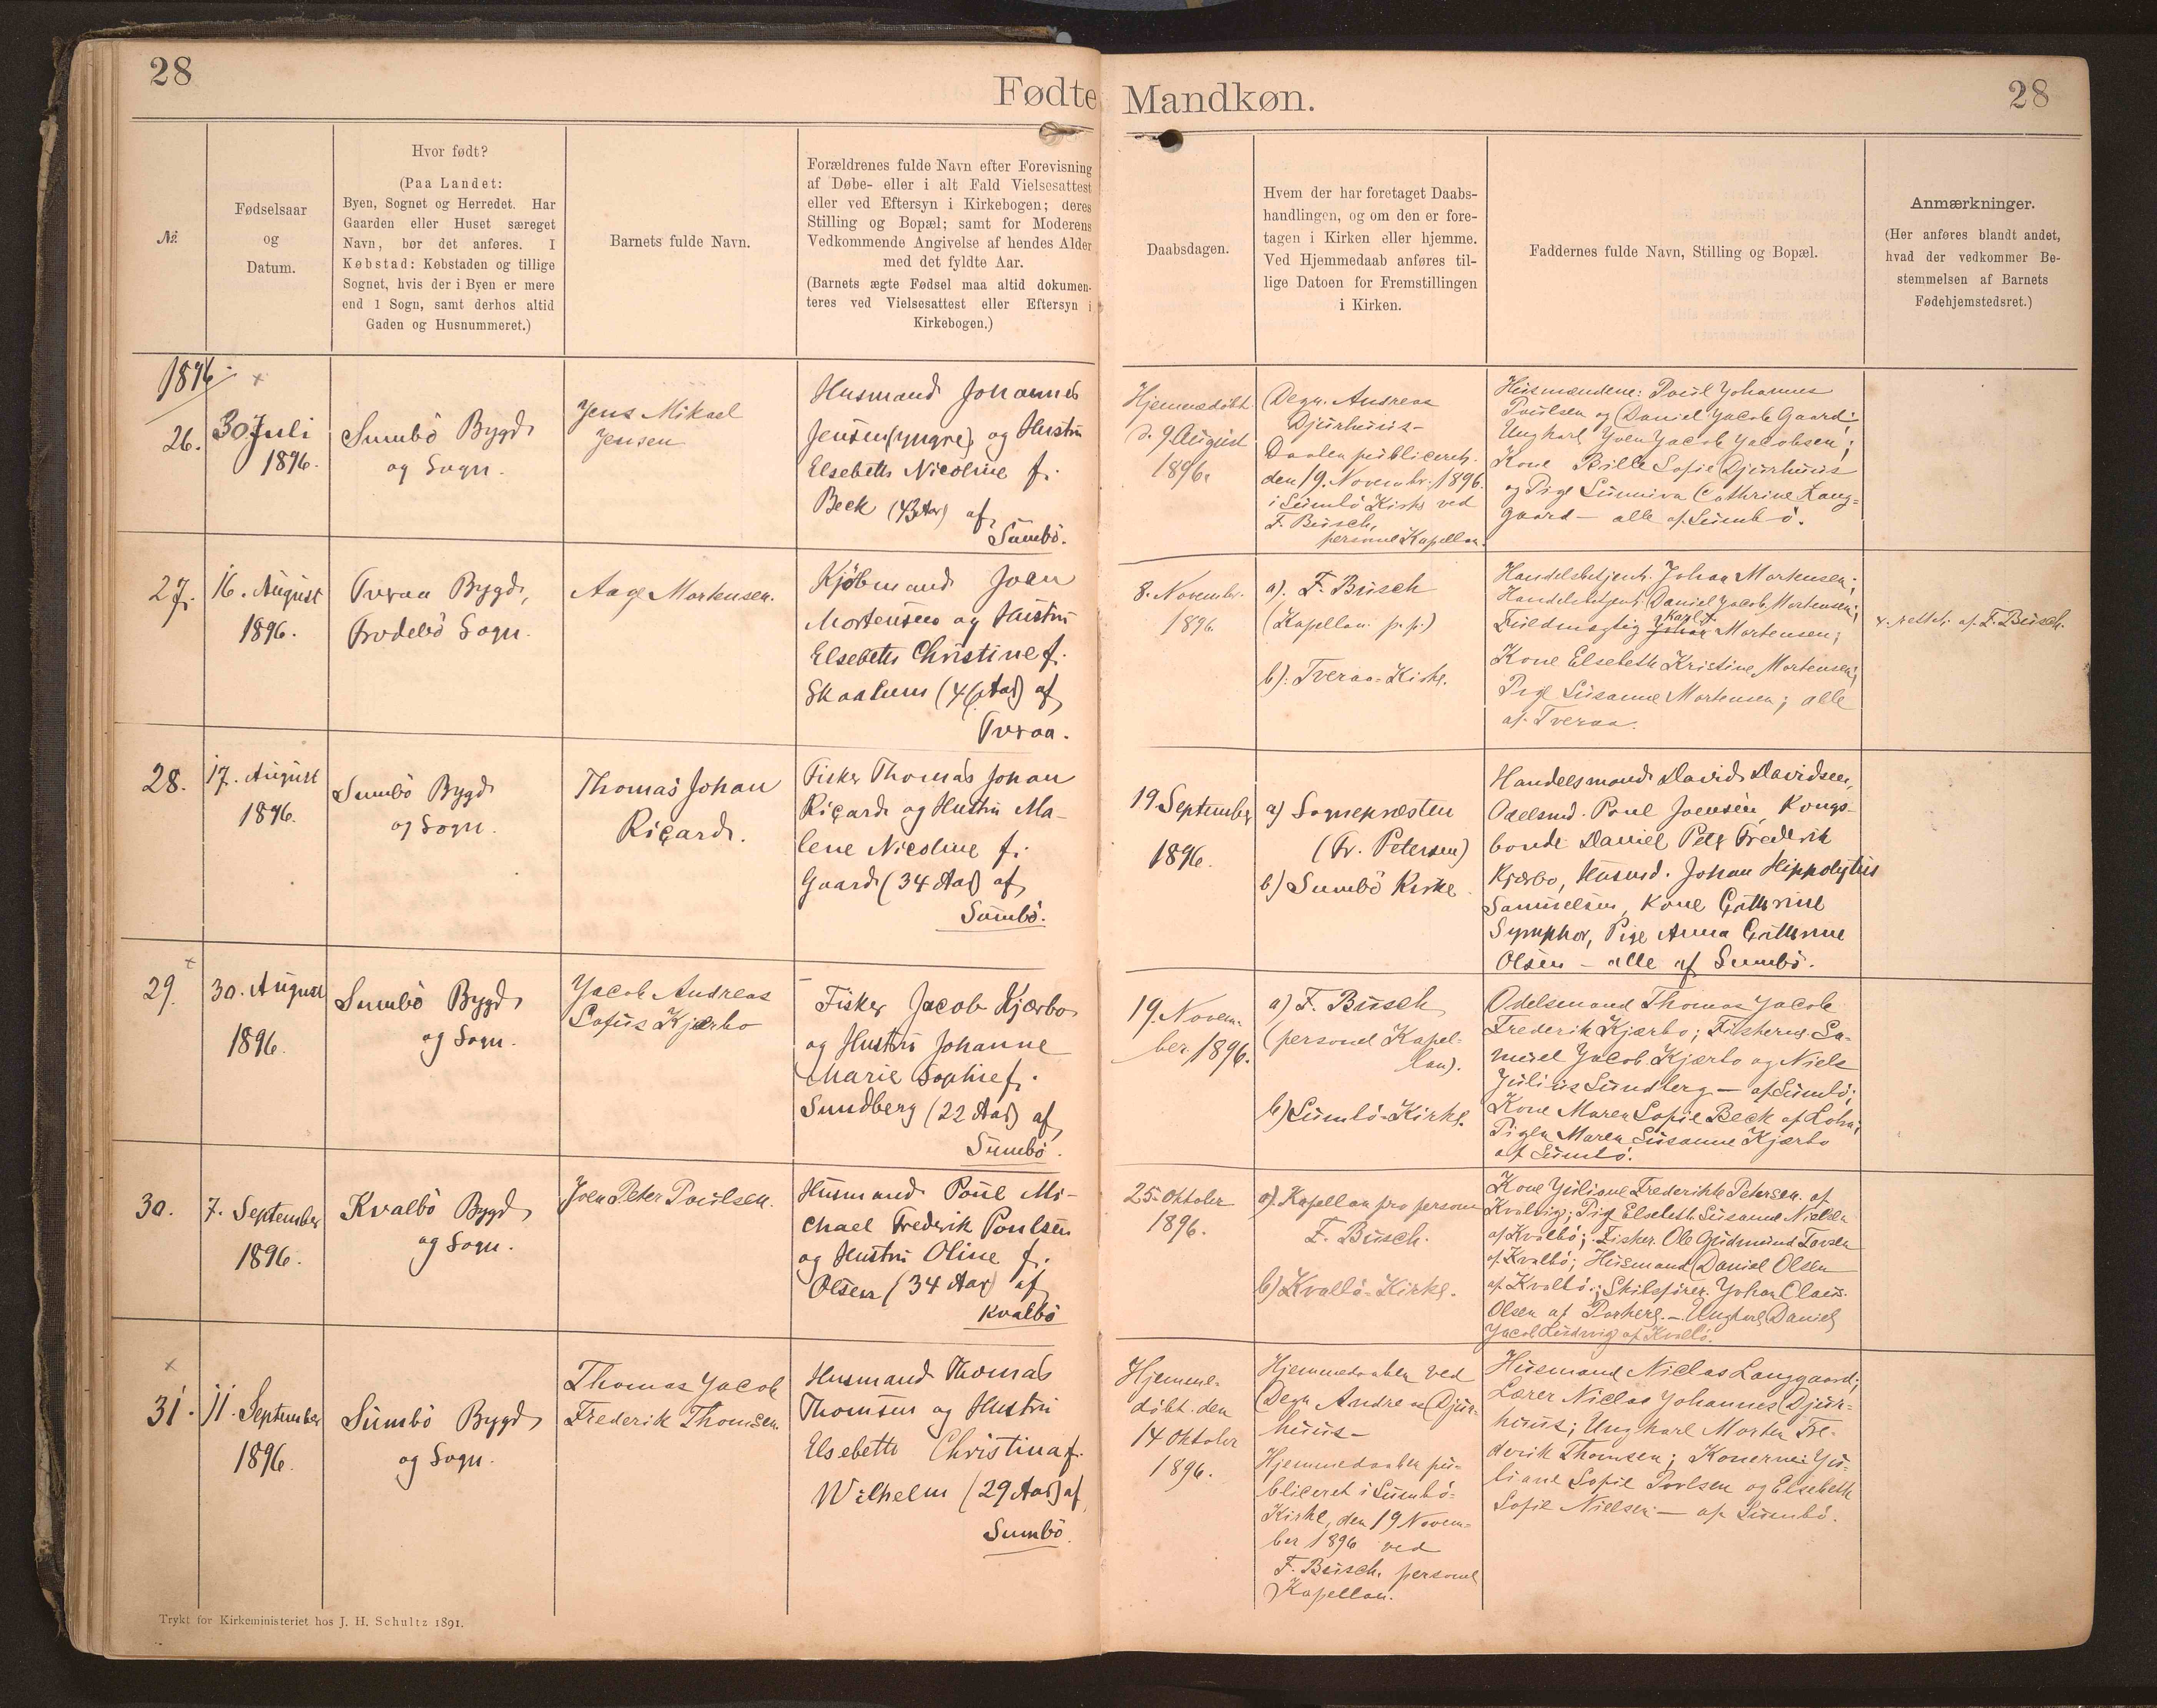 28
Fødte
Mandkøn.
28
№
Fødselsaar
og
Datum.
Hvor født?
(Paa Landet:
Byen, Sognet og Herredet. Har
Gaarden eller Huset særeget
Navn, bør det anføres. I
Købstad: Købstaden og tillige
Sognet, hvis der i Byen er mere
end 1 Sogn, samt derhos altid
Gaden og Husnummeret.)
Barnets fulde Navn.
Forældrenes fulde Navn efter Forevisning
af Døbe- eller i alt Fald Vielsesattest
eller ved Eftersyn i Kirkebogen; deres
Stilling og Bopæl; samt for Moderens
Vedkommende Angivelse af hendes Alder
med det fyldte Aar.
(Barnets ægte Fødsel maa altid dokumen-
teres ved Vielsesattest eller Eftersyn i
Kirkebogen.)
Daabsdagen.
Hvem der har foretaget Daabs-
handlingen, og om den er fore-
tagen i Kirken eller hjemme.
Ved Hjemmedaab anføres til-
lige Datoen for Fremstillingen
i Kirken.
Faddernes fulde Navn, Stilling og Bopæl.
Anmærkninger.
(Her anføres blandt andet,
hvad der vedkommer Be-
stemmelsen af Barnets
Fødehjemstedsret.)
1896
26.
30 Juli
1896.
Sumbö Bygd
og Sogn.
Jens Mikael
Jensen
Husmand Johannes
Jensen (yngre) og Hustru
Elsebeth Nicoline f.
Beck (43 Aar) af
Sumbö.
Hjemmedöbt
d. 9 August
1896.
Degn Andreas
Djurhuus –
Daaben publiceret
den 19. Novembr. 1896.
i Sumbö Kirke ved
F. Busch,
personel Kapellan.
Husmændene: Poul Johannes
Poulsen og Daniel Jacob Gaard;
Ungkarl Joen Jacob Jacobsen;
Kone Bille Sofie Djurhuus
og Pige Sunniva Cathrine Lang-
gaard – alle af Sumbö.
27.
16. August
1896.
Tveraa Bygd,
Frodebö Sogn.
Aage Mortensen.
Kjöbmand Joen
Mortensen og Hustru
Elsebeth Christine f.
Skaalum (46 Aar) af
Tveraa.
8. Novembr.
1896
a). F. Busch
(Kapellan p. p.)
b). Tveraa-Kirke.
Handelsbetjent Johan Mortensen;
Handelsbetjent Daniel Jacob Mortensen;
Karl x
Fuldmægtig Johan Mortensen;
Kone Elsebeth Kristine Mortensen;
Pige Susanne Mortensen; alle
af Tveraa.
x. rettet af F. Busch.
28.
17. August
1896.
Sumbö Bygd
og Sogn.
Thomas Johan
Riçard.
Fisker Thomas Johan
Riçard og Hustru Ma-
lene Nicoline f.
Gaard (34 Aar) af
Sumbö.
19 September
1896.
a) Sognepræsten
(Fr. Petersen)
b) Sumbö Kirke
Handelsmand David Davidsen,
Odelsmd. Poul Joensen, Kongs-
bonde Daniel Peter Frederik
Kjærbo, Husmd. Johan Hippolytus
Samuelsen, Kone Cathrine
Symphor, Pige Anna Cathrine
Olsen – alle af Sumbö.
29.
30. August
1896.
Sumbö Bygd
og Sogn.
Jacob Andreas
Sofus Kjærbo
Fisker Jacob Kjærbo
og Hustru Johanne
Marie Sophie f.
Sundberg (22 Aar) af
Sumbö.
19. Novem-
ber 1896.
a) F. Busch
(personel Kapel-
lan).
b) Sumbö-Kirke.
Odelsmand Thomas Jacob
Frederik Kjærbo; Fiskerne Sa-
muel Jacob Kjærbo og Niels
Julius Sundberg – af Sumbö;
Kone Maren Sofie Beck af Loba;
Pigen Maren Susanne Kjærbo
af Sumbö.
30.
7. September
1896.
Kvalbö Bygd
og Sogn.
Joen Peter Poulsen.
Husmand Poul Mi-
chael Frederik Poulsen
og Hustru Oline f.
Olsen (34 Aar) af
Kvalbö
25. Oktober
1896.
a). Kapellan pro persona
F. Busch.
b) Kvalbö-Kirke.
Kone Juliane Frederikke Petersen af
Kvalvig; Pige Elsebeth Susanne Nielsen
af Kvalbö; Fisker Ole Gudmund Larsen
af Kvalbö; Husmand Daniel Olsen
af Kvalbö; Skibsfører Johan Claus
Olsen af Porkere. – Ungkarl Daniel
Jacob Ludvig af Kvalbö.
31.
11. September
1896.
Sumbö Bygd
og Sogn.
Thomas Jacob
Frederik Thomsen.
Husmand Thomas
Thomsen og Hustru
Elsebeth Christina f.
Wilhelm (29 Aar) af
Sumbö.
Hjemme-
döbt den
14 Oktober
1896.
Hjemmedaaben ved
Degn Andreas Djur-
huus –
Hjemmedaaben pu-
bliceret i Sumbö-
Kirke, den 19 Novem-
ber 1896 ved
F. Busch. personel
Kapellan.
Husmand Niclas Langgaard;
Lærer Niclas Johannes Djur-
huus; Ungkarl Morten Fre-
derik Thomsen; Konerne: Ju-
liane Sofie Povlsen og Elsebeth
Sofie Nielsen – af Sumbö.
Trykt for Kirkeministeriet hos J. H. Schultz 1891.